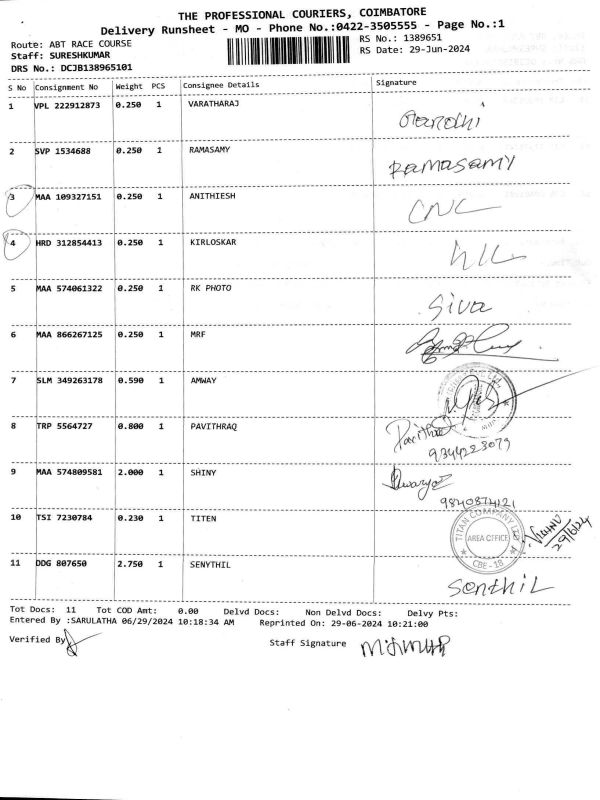 THE PROFESSIONAL COURIERS, COIMBATORE
Delivery Runsheet - MO - Phone No.:0422-3505555 - Page No.:1
Route: ABT RACE COURSE
RS No.: 1389651
Staff: SURESHKUMAR
RS Date: 29-Jun-2024
DRS No.: DCJB138965101
S No Consignment No Weight PCS Consignee Details Signature
1 VPL 222912873 0.250 1 VARATHARAJ
2 SVP 1534688 0.250 1 RAMASAMY Ramasamy
3 MAA 109327151 0.250 1 ANITHIESH CNC
4 HRD 312854413 0.250 1 KIRLOSKAR
5 MAA 574061322 0.250 1 RK PHOTO Siva
6 MAA 866267125 0.250 1 MRF
7 SLM 349263178 0.590 1 AMWAY
8 TRP 5564727 0.800 1 PAVITHRAQ Pavithra
9344223079
9 MAA 574809581 2.000 1 SHINY
9840874121
10 TSI 7230784 0.230 1 TITEN TITAN COMPANY LTD AREA OFFICE CBE-18 VISHNU 29/6/24
11 DDG 807650 2.750 1 SENYTHIL Senthil
Tot Docs: 11 Tot COD Amt: 0.00 Delvd Docs: Non Delvd Docs: Delvy Pts:
Entered By :SARULATHA 06/29/2024 10:18:34 AM Reprinted On: 29-06-2024 10:21:00
Verified By
Staff Signature